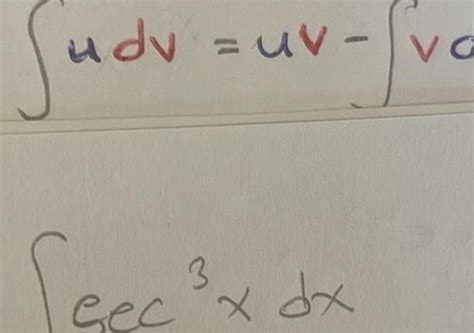 ∫ u dv = uv - ∫ v
∫ sec³ x dx